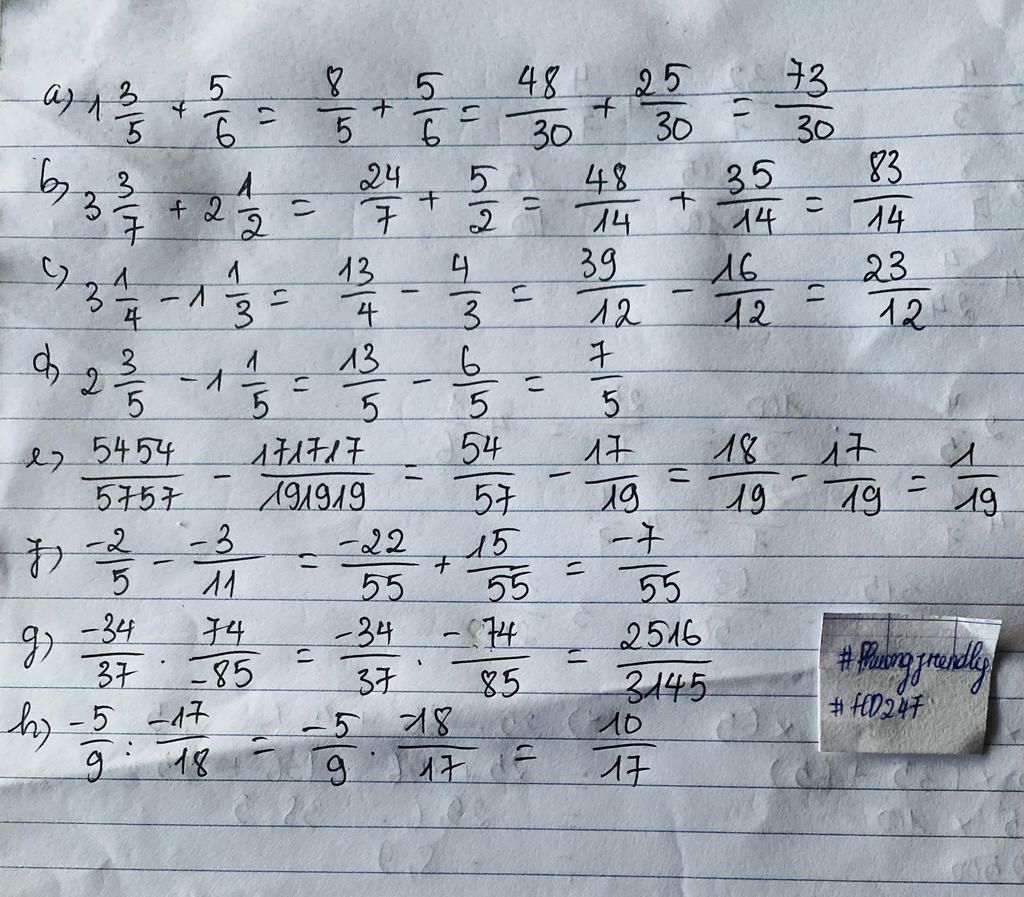 a) 1 3/5 + 5/6 = 8/5 + 5/6 = 48/30 + 25/30 = 73/30
b) 3 3/7 + 2 1/2 = 24/7 + 5/2 = 48/14 + 35/14 = 83/14
c) 3 1/4 - 1 1/3 = 13/4 - 4/3 = 39/12 - 16/12 = 23/12
d) 2 3/5 - 1 1/5 = 13/5 - 6/5 = 7/5
e) 5454/5757 - 171717/191919 = 54/57 - 17/19 = 18/19 - 17/19 = 1/19
f) -2/5 - -3/11 = -22/55 + 15/55 = -7/55
g) -34/37 . 74/-85 = -34/37 . -74/85 = 2516/3145
h) -5/9 : -17/18 = -5/9 . -18/17 = 10/17
#Phuongfriendly
#HD247